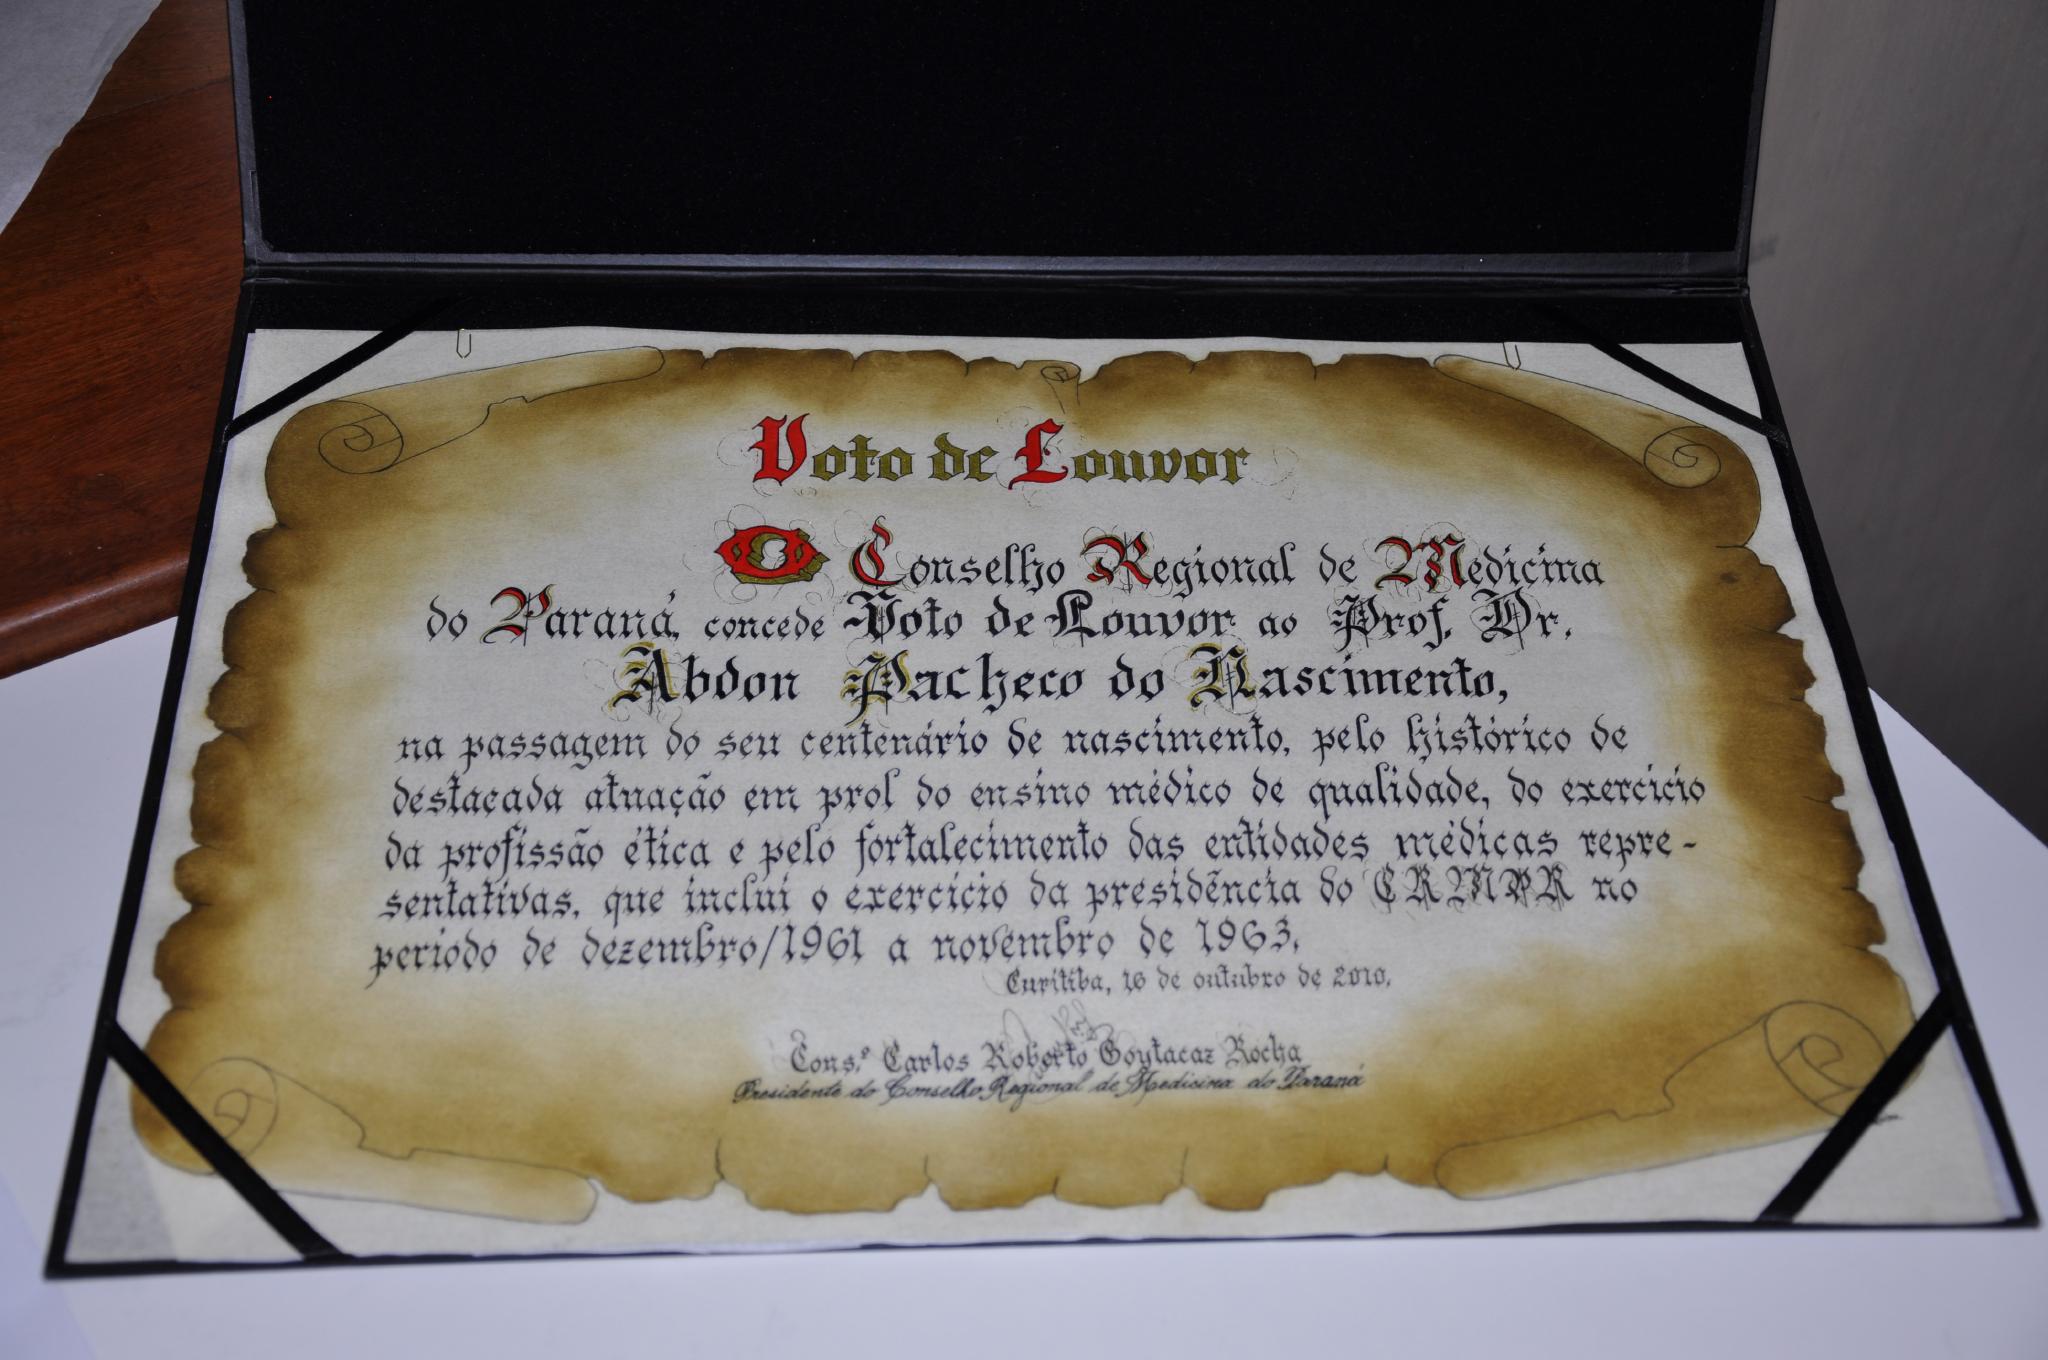 Voto de Louvor
O Conselho Regional de Medicina
do Paraná, concede Voto de Louvor ao Prof. Dr.
Abdon Pacheco do Nascimento,
na passagem do seu centenário de nascimento, pelo histórico de
destacada atuação em prol do ensino médico de qualidade, do exercício
da profissão ética e pelo fortalecimento das entidades médicas repre-
sentativas, que inclui o exercício da presidência do CRMPR no
período de dezembro/1961 a novembro de 1963.
Curitiba, 16 de outubro de 2010.
Cons.º Carlos Roberto Goytacaz Rocha
Presidente do Conselho Regional de Medicina do Paraná